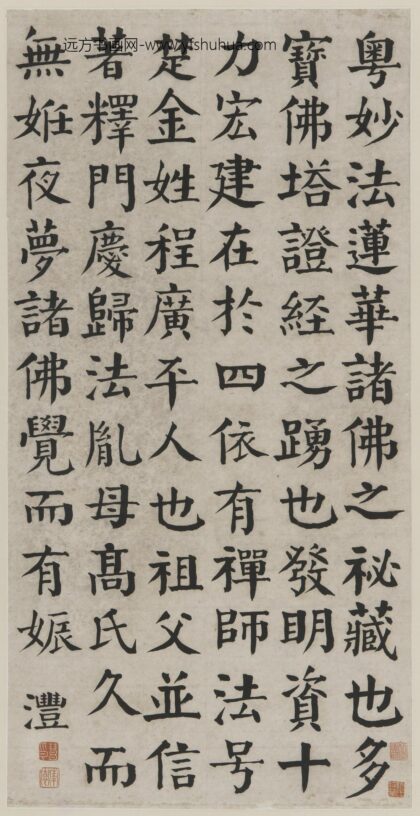 远方书画网-www.yfshuhua.com
粵妙法蓮華諸佛之祕藏也多
寶佛塔證經之踴也發明資十
力宏建在於四依有禪師法号
楚金姓程廣平人也祖父並信
著釋門慶歸法胤母髙氏久而
無姙夜夢諸佛覺而有娠
灃